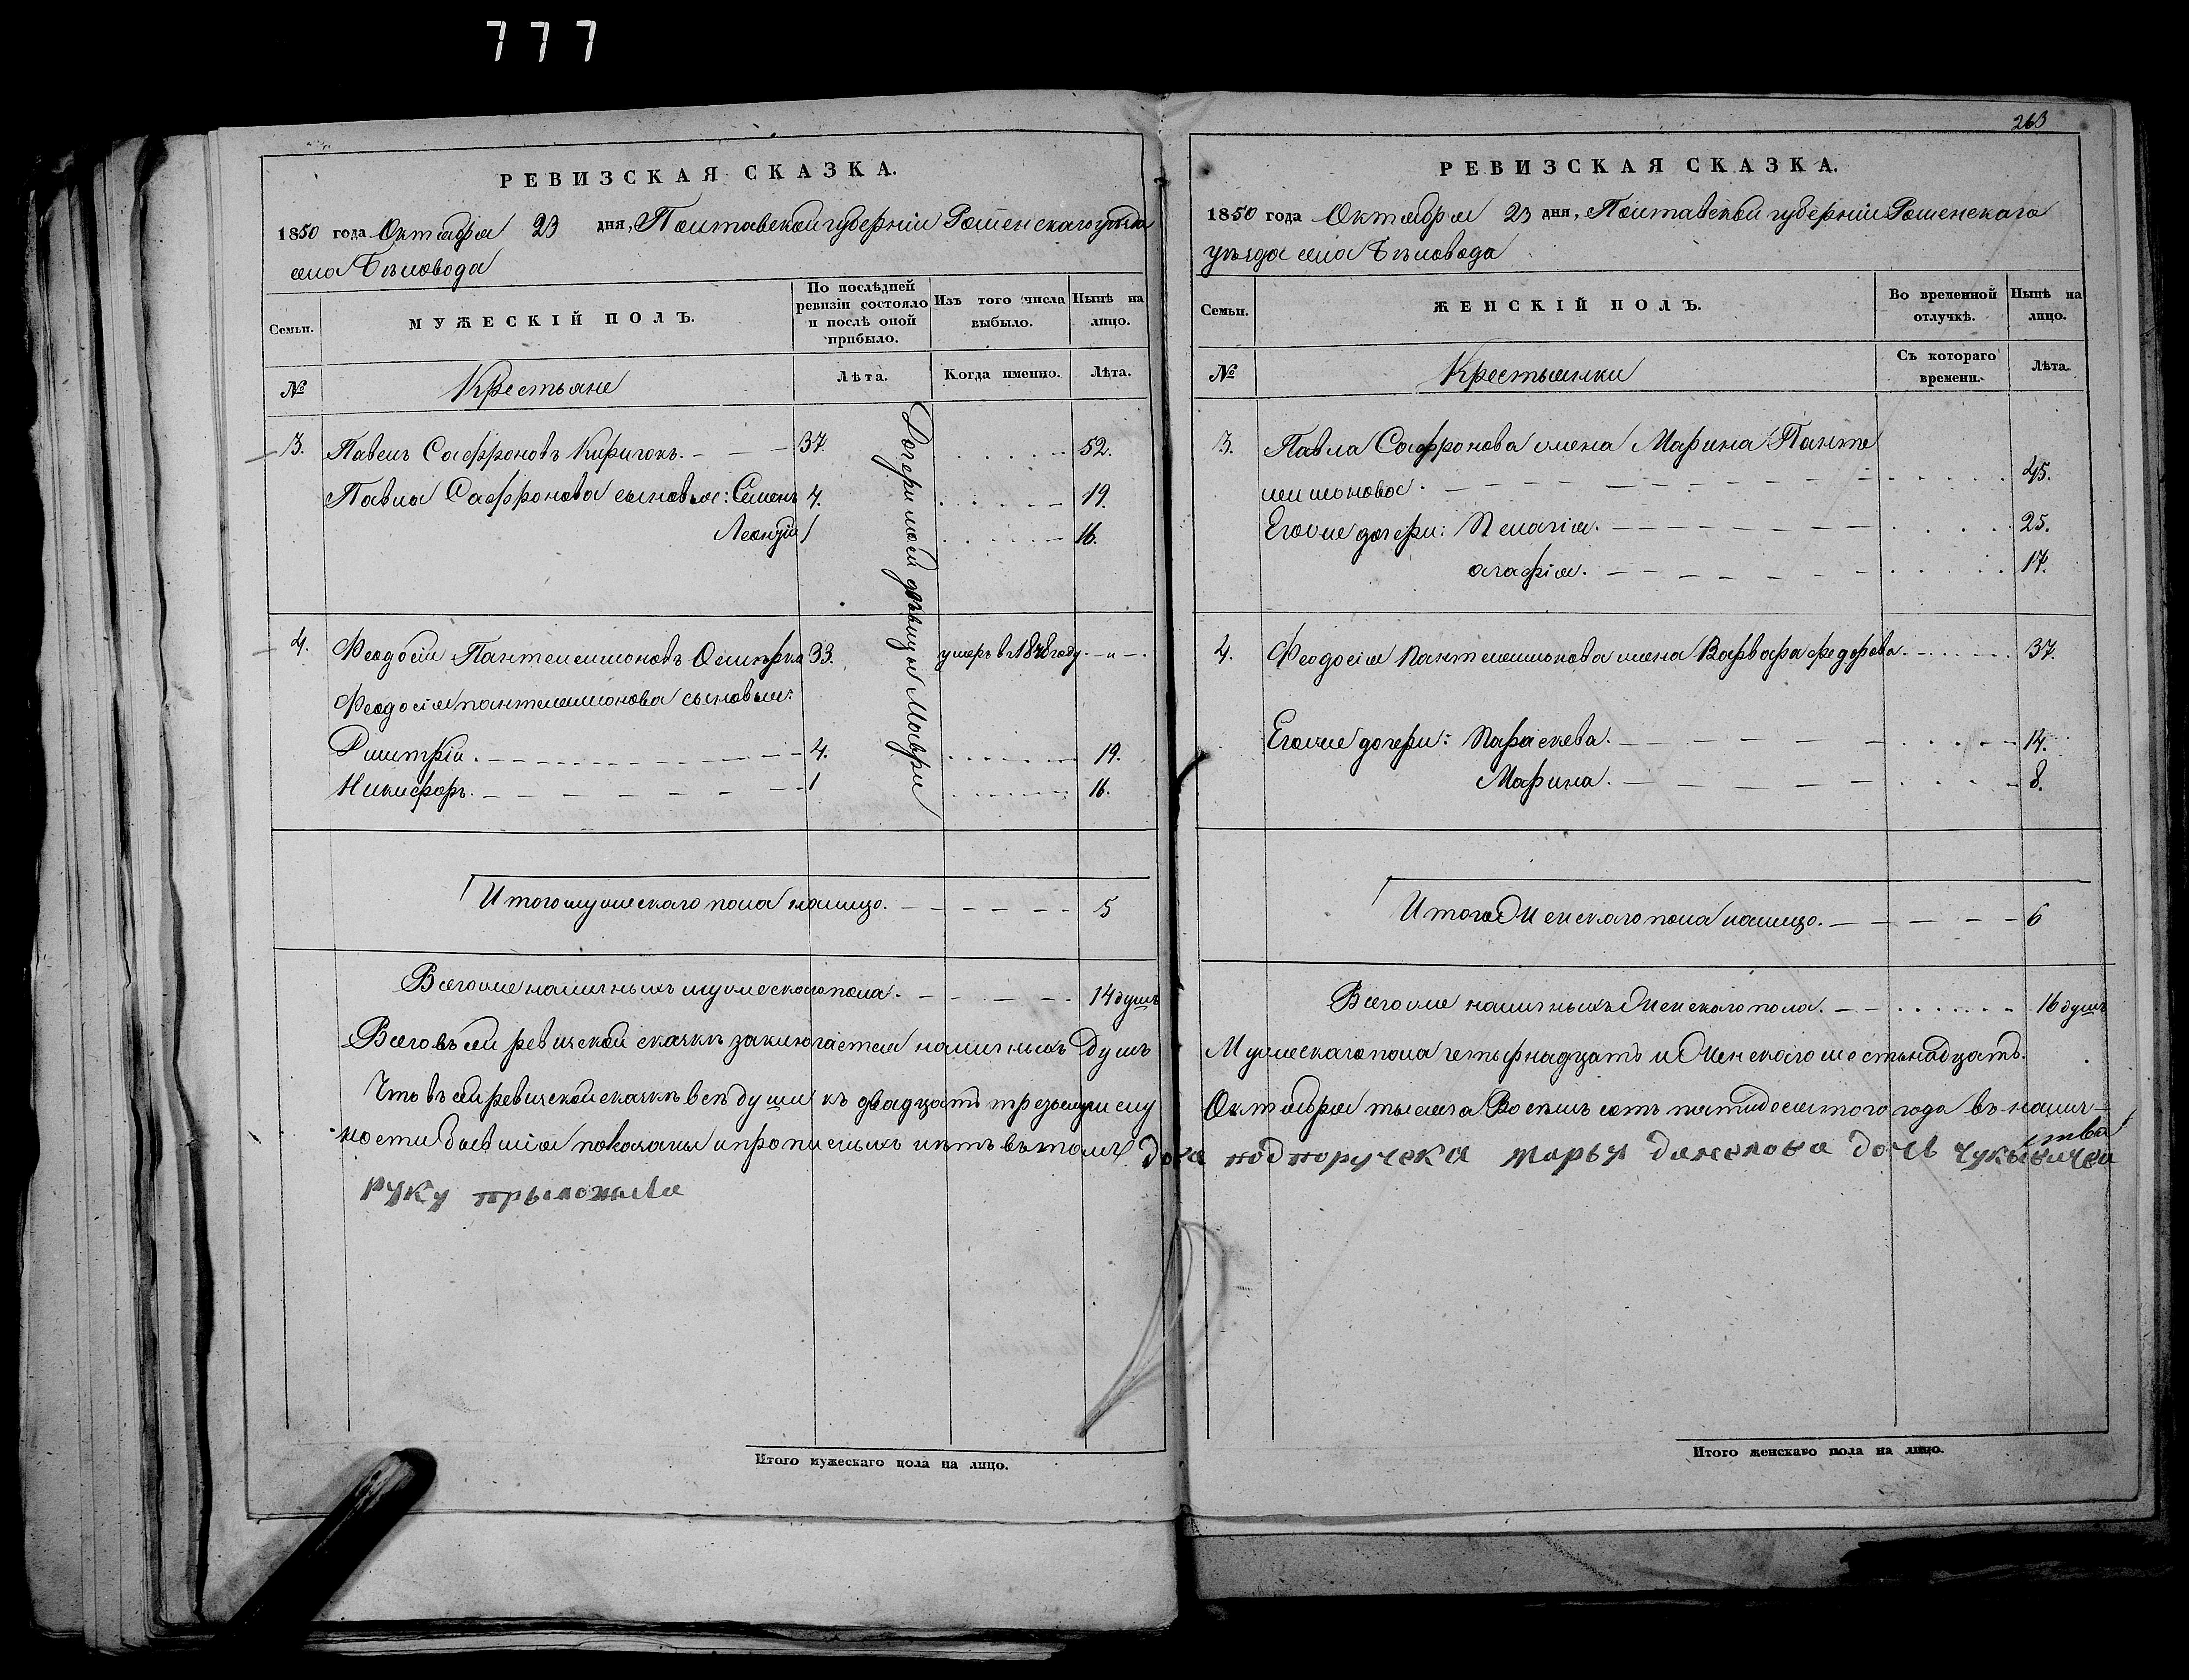 777
РЕВИЗСКАЯ СКАЗКА.
1850 года Октября 23 дня, Полтавской губерніи Роменского уѣзда
села Бѣловода
Семьи.
МУЖЕСКІЙ ПОЛЪ.
По послѣдней ревизіи состояло и послѣ оной прибыло.
Изъ того числа выбыло.
Нынѣ на лицо.
№
Крестьяне
Лѣта.
Когда именно.
Лѣта.
3. Павелъ Сафроновъ Киричокъ. 37. 52.
Павла Сафронова сыновья: Семенъ 4. 19.
Леонтій 1 16.
4. Феодосій Пантелеимоновъ 33. умеръ в 1848 году. — „ —
Феодосія пантелеимонова сыновья:
Дмитрій. 4. 19.
Никифоръ. 1 16.
Итого мужескаго пола налицо. 5
Всего же наличныхъ мужескаго пола. 14 душъ
Всего въ сей ревизской сказкѣ заключается наличныхъ душъ
Что въ сей ревизской сказкѣ всѣ души къ двадцать третьему
ности бывшія показаны и прописныхъ нѣтъ въ томъ
руку прыложила
Дочери моей дѣвицы Мавры
263
РЕВИЗСКАЯ СКАЗКА.
1850 года Октября 23 дня, Полтавской губерніи Роменскаго
уѣзда села Бѣловода
Семьи.
ЖЕНСКІЙ ПОЛЪ.
Во временной отлучкѣ.
Нынѣ на лицо.
№
Крестьянки
Съ котораго времени.
Лѣта.
3. Павла Сафронова жена Марина Панте
леимонова. 45.
Его же дочери: Пелагія. 25.
агафія. 17.
4. Феодосія пантелеимонова жена Варвара федорова. 37.
Его же дочери: Параскева. 14.
Марина. 8.
Итого Женскаго пола налицо. 6
Всего же наличныхъ Женскаго пола. 16 душъ
Мужескаго пола четырнадцать и Женскаго шестьнадцать.
Октября тысяча Восемь сотъ пятидесятого года въ налич-
подпоручека марья данелова дочь
Итого мужескаго пола на лицо.
Итого женскаго пола на лицо.